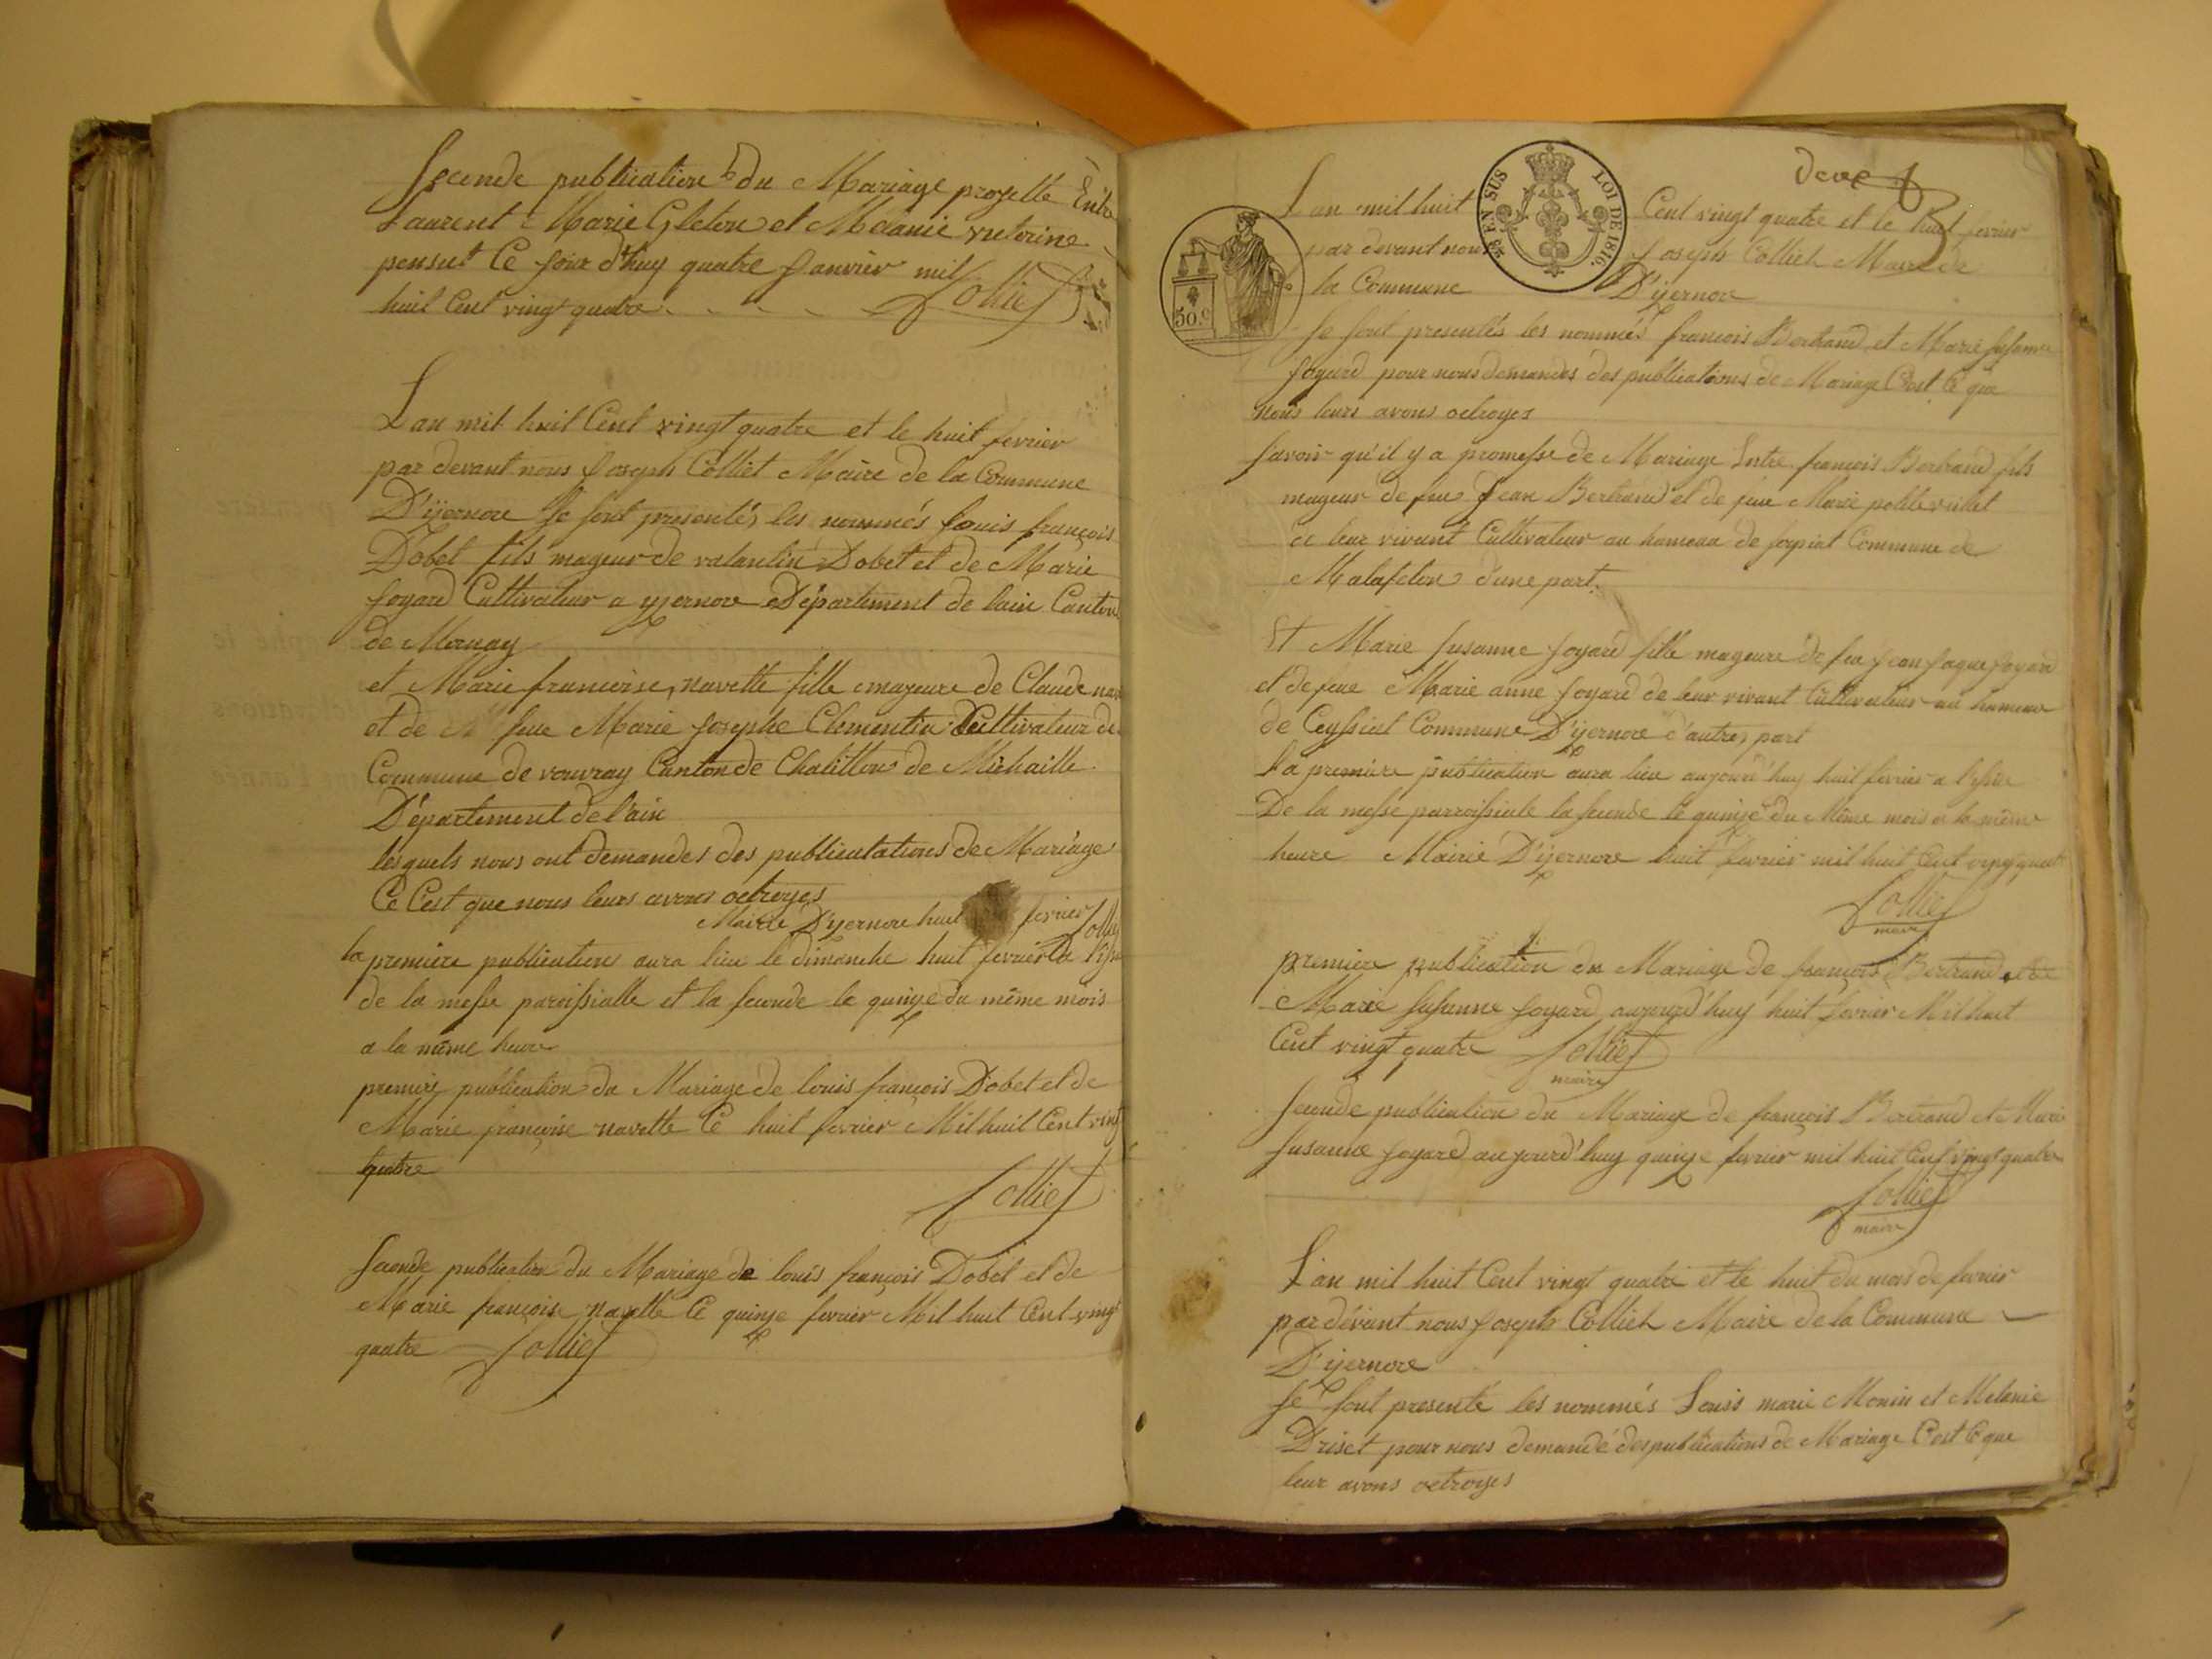 Seconde publication du Mariage projetté Entre
Laurent Marie Gleton et Melanie victorine
pensut Ce jour d'huy quatre Janvier mil
huit Cent vingt quatre Colliet
Lan mil huit Cent vingt quatre et le huit fevrier
par devant nous Joseph Colliet Maire de la Commune
D'yzernore Se sont presentés les nommés Louis françois
Dobet fils mageur de valantin Dobet et de Marie
foyard Cultivateur a yzernore Département de lain Canton
de Mornay
et Marie francoise navette fille mageure de Claude nav
et de feue Marie Josephe Clementin Cultivateur de
Commune de vouvray Canton de Chatillon de Michaille
Département de l'ain
lesquels nous ont demandes des publicutations de Mariage
Ce C'est que nous leurs avons octroyes
Mairie D'yzernore huit fevrier Colliet
la premiere publication aura lieu le dimanche huit fevrier a l'issue
de la messe paroissialle et la seconde le quinze du même mois
a la même heure
premiere publication du Mariage de louis françois Dobet et de
Marie françoise navette Ce huit fevrier Mil huit Cent vingt
quatre
Colliet
Seconde publication du Mariage de louis françois Dobet et de
Marie françoise navette Ce quinze fevrier Mil huit Cent vingt
quatre Colliet
deux
EN SUS LOI DE 1816.
50.c
Lan mil huit Cent vingt quatre et le huit fevrier
par devant nous Joseph Colliet Maire de
la Commune D'yzernore
Se sont presentés les nommés françois Bertrand et Marie Susanne
foyard pour nous demandes des publications de Mariage C'est Ce que
nous leurs avons octroyes
Savoir qu'il y a promesse de Mariage Entre françois Bertrand fils
mageur de feu Jean Bertrand et de feue Marie
de leur vivant Cultivateur au hameau de Commune de
Malafelon d'une part.
Et Marie Susanne foyard fille mageure de feu Jean Jaque foyard
et de feue Marie anne foyard de leur vivant Cultivateur au hameau
de Ceyssiat Commune D'yzernore d'autre part
La premiere publication aura lieu aujourd'huy huit fevrier a l'issue
De la messe parroissiale la seconde le quinze du Même mois a la même
heure Mairie D'yzernore huit fevrier mil huit Cent vingt quatre
Colliet
maire
premiere publication du Mariage de françois Bertrand et de
Marie Susanne foyard aujourd'huy huit fevrier Mil huit
Cent vingt quatre Colliet
maire
Seconde publication du Mariage de françois Bertrand et Marie
Susanne foyard aujourd'huy quinze fevrier mil huit Cent vingt quatre
Colliet
maire
L'an mil huit Cent vingt quatre et le huit du mois de fevrier
par dévant nous Joseph Colliet Maire de la Commune
D'yzernore
Se sont presenté les nommés Louis marie Monin et Melanie
Driset pour nous demandé des publications de Mariage C'est Ce que
leur avons octroyes